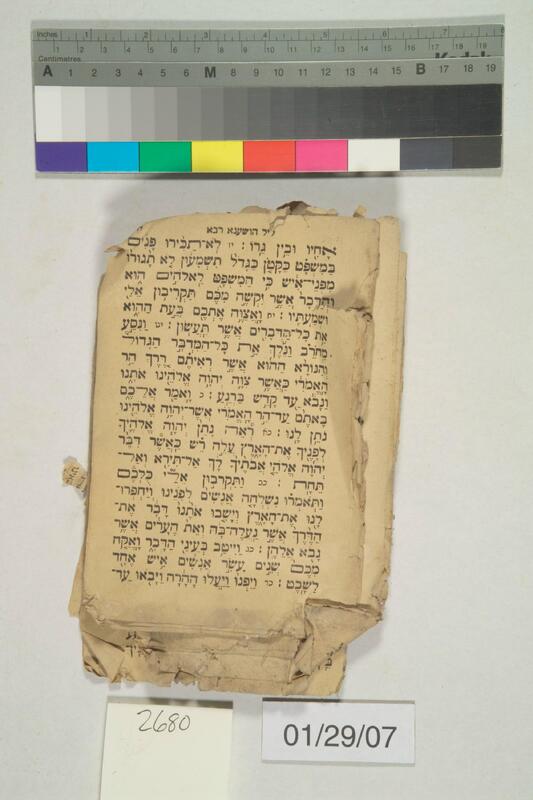 Inches 1 2 3 4 5 6 7 8
Centimetres 1 2 3 4 5 6 7 8 9 10 11 12 13 14 15 16 17 18 19
Kodak
A 1 2 3 4 5 6 M 8 9 10 11 12 13 14 15 B 17 18 19
ליל הושענא רבא
אָחִיו וּבֵין גֵּרוֹ׃ יז לֹא־תַכִּירוּ פָנִים
בַּמִּשְׁפָּט כַּקָּטֹן כַּגָּדֹל תִּשְׁמָעוּן לֹא תָגוּרוּ
מִפְּנֵי־אִישׁ כִּי הַמִּשְׁפָּט לֵאלֹהִים הוּא
וְהַדָּבָר אֲשֶׁר יִקְשֶׁה מִכֶּם תַּקְרִבוּן אֵלַי
וּשְׁמַעְתִּיו׃ יח וָאֲצַוֶּה אֶתְכֶם בָּעֵת הַהִוא
אֵת כָּל־הַדְּבָרִים אֲשֶׁר תַּעֲשׂוּן׃ יט וַנִּסַּע
מֵחֹרֵב וַנֵּלֶךְ אֵת כָּל־הַמִּדְבָּר הַגָּדוֹל
וְהַנּוֹרָא הַהוּא אֲשֶׁר רְאִיתֶם דֶּרֶךְ הַר
הָאֱמֹרִי כַּאֲשֶׁר צִוָּה יְהוָה אֱלֹהֵינוּ אֹתָנוּ
וַנָּבֹא עַד קָדֵשׁ בַּרְנֵעַ׃ כ וָאֹמַר אֲלֵכֶם
בָּאתֶם עַד־הַר הָאֱמֹרִי אֲשֶׁר־יְהוָה אֱלֹהֵינוּ
נֹתֵן לָנוּ׃ כא רְאֵה נָתַן יְהוָה אֱלֹהֶיךָ
לְפָנֶיךָ אֶת־הָאָרֶץ עֲלֵה רֵשׁ כַּאֲשֶׁר דִּבֶּר
יְהוָה אֱלֹהֵי אֲבֹתֶיךָ לָךְ אַל־תִּירָא וְאַל־
תֵּחָת׃ כב וַתִּקְרְבוּן אֵלַי כֻּלְּכֶם
וַתֹּאמְרוּ נִשְׁלְחָה אֲנָשִׁים לְפָנֵינוּ וְיַחְפְּרוּ־
לָנוּ אֶת־הָאָרֶץ וְיָשִׁבוּ אֹתָנוּ דָּבָר אֶת־
הַדֶּרֶךְ אֲשֶׁר נַעֲלֶה־בָּהּ וְאֵת הֶעָרִים אֲשֶׁר
נָבֹא אֲלֵיהֶן׃ כג וַיִּיטַב בְּעֵינַי הַדָּבָר וָאֶקַּח
מִכֶּם שְׁנֵים עָשָׂר אֲנָשִׁים אִישׁ אֶחָד
לַשָּׁבֶט׃ כד וַיִּפְנוּ וַיַּעֲלוּ הָהָרָה וַיָּבֹאוּ עַד־
2680
01/29/07